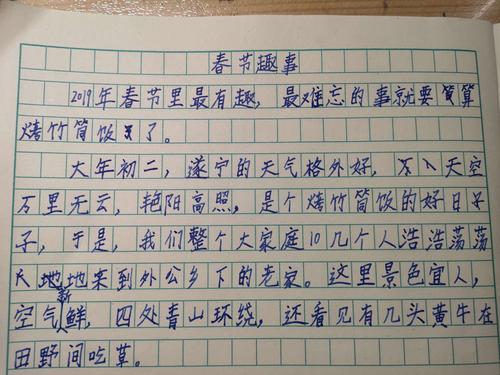 春节趣事
2019年春节里最有趣，最难忘的事就要算
烤竹筒饭了。
大年初二，遂宁的天气格外好，天空
万里无云，艳阳高照，是个烤竹筒饭的好日子
子，于是，我们整个大家庭10几个人浩浩荡荡
地地来到外公乡下的老家。这里景色宜人，
空气新鲜，四处青山环绕，还看见有几头黄牛在
田野间吃草。